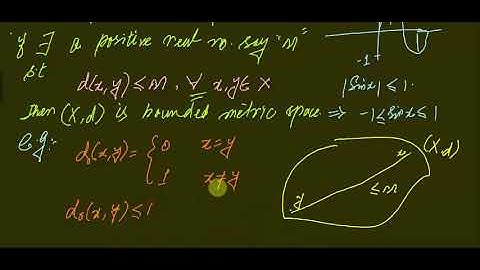 if ∃ a positive real no. say "M"
st
d(x,y) ≤ M, ∀ x,y ∈ X
Then (X,d) is bounded metric space ⇒ -1 ≤ Sinx ≤ 1
-1
|Sinx| ≤ 1.
e.g:
d₀(x,y) = { 0 x=y
1 x≠y
d₀(x,y) ≤ 1
(X,d)
x
≤ M
y